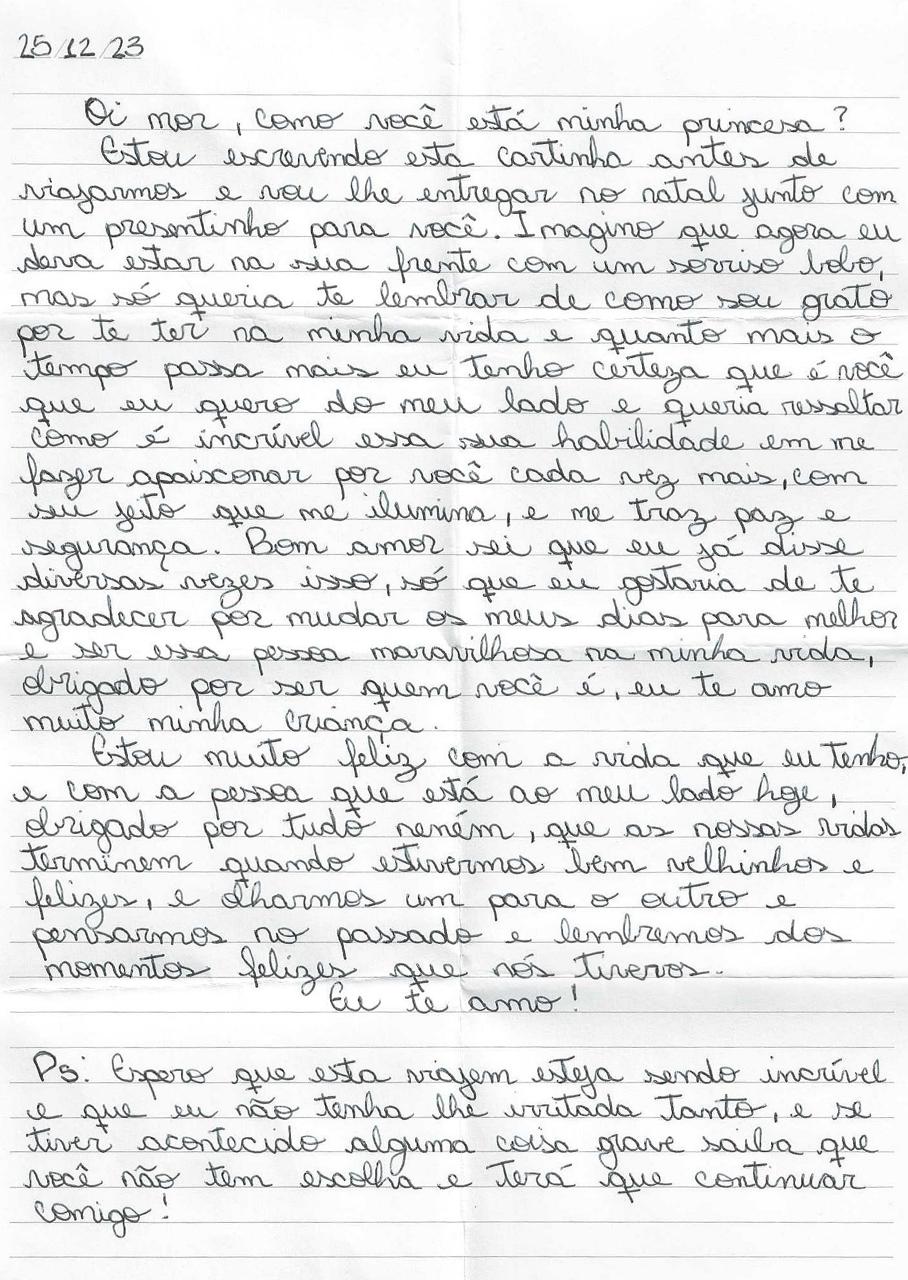 25/12/23
Oi mor, como você está minha princesa?
Estou escrevendo esta cartinha antes de
viajarmos e vou lhe entregar no natal junto com
um presentinho para você. Imagino que agora eu
deva estar na sua frente com um sorriso bobo,
mas só queria te lembrar de como sou grato
por te ter na minha vida e quanto mais o
tempo passa mais eu tenho certeza que é você
que eu quero do meu lado e queria ressaltar
como é incrível essa sua habilidade em me
fazer apaixonar por você cada vez mais, com
seu jeito que me ilumina, e me traz paz e
segurança. Bom amor sei que eu já disse
diversas vezes isso, só que eu gostaria de te
agradecer por mudar os meus dias para melhor
e ser essa pessoa maravilhosa na minha vida,
obrigado por ser quem você é, eu te amo
muito minha criança.
Estou muito feliz com a vida que eu tenho,
e com a pessoa que está ao meu lado hoje,
obrigado por tudo neném, que as nossas vidas
terminem quando estivermos bem velhinhos e
felizes, e olharmos um para o outro e
pensarmos no passado e lembremos dos
momentos felizes que nós tiveros.
Eu te amo!
Ps: Espero que esta viajem esteja sendo incrível
e que eu não tenha lhe irritada tanto, e se
tiver acontecido alguma coisa grave saiba que
você não tem escolha e terá que continuar
comigo!